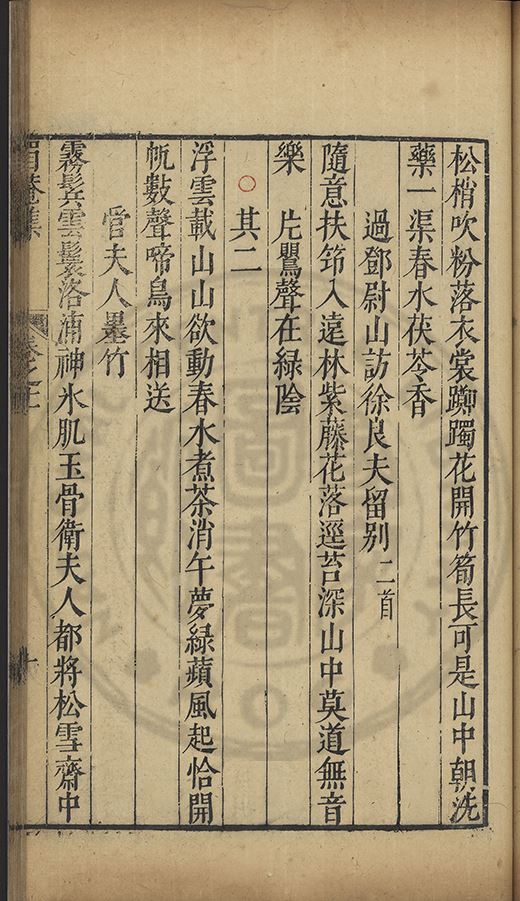 松梢吹粉落衣裳躑躅花開竹筍長可是山中朝洗
藥一渠春水茯苓香
過鄧尉山訪徐良夫留别二首
隨意扶筇入遠林紫藤花落逕苔深山中莫道無音
樂片片鶯聲在緑陰
其二
浮雲載山山欲動春水煮茶消午夢緑蘋風起恰開
帆數聲啼鳥來相送
管夫人墨竹
霧髩雲鬟洛浦神氷肌玉骨衛夫人都將松雪齋中
卷之上